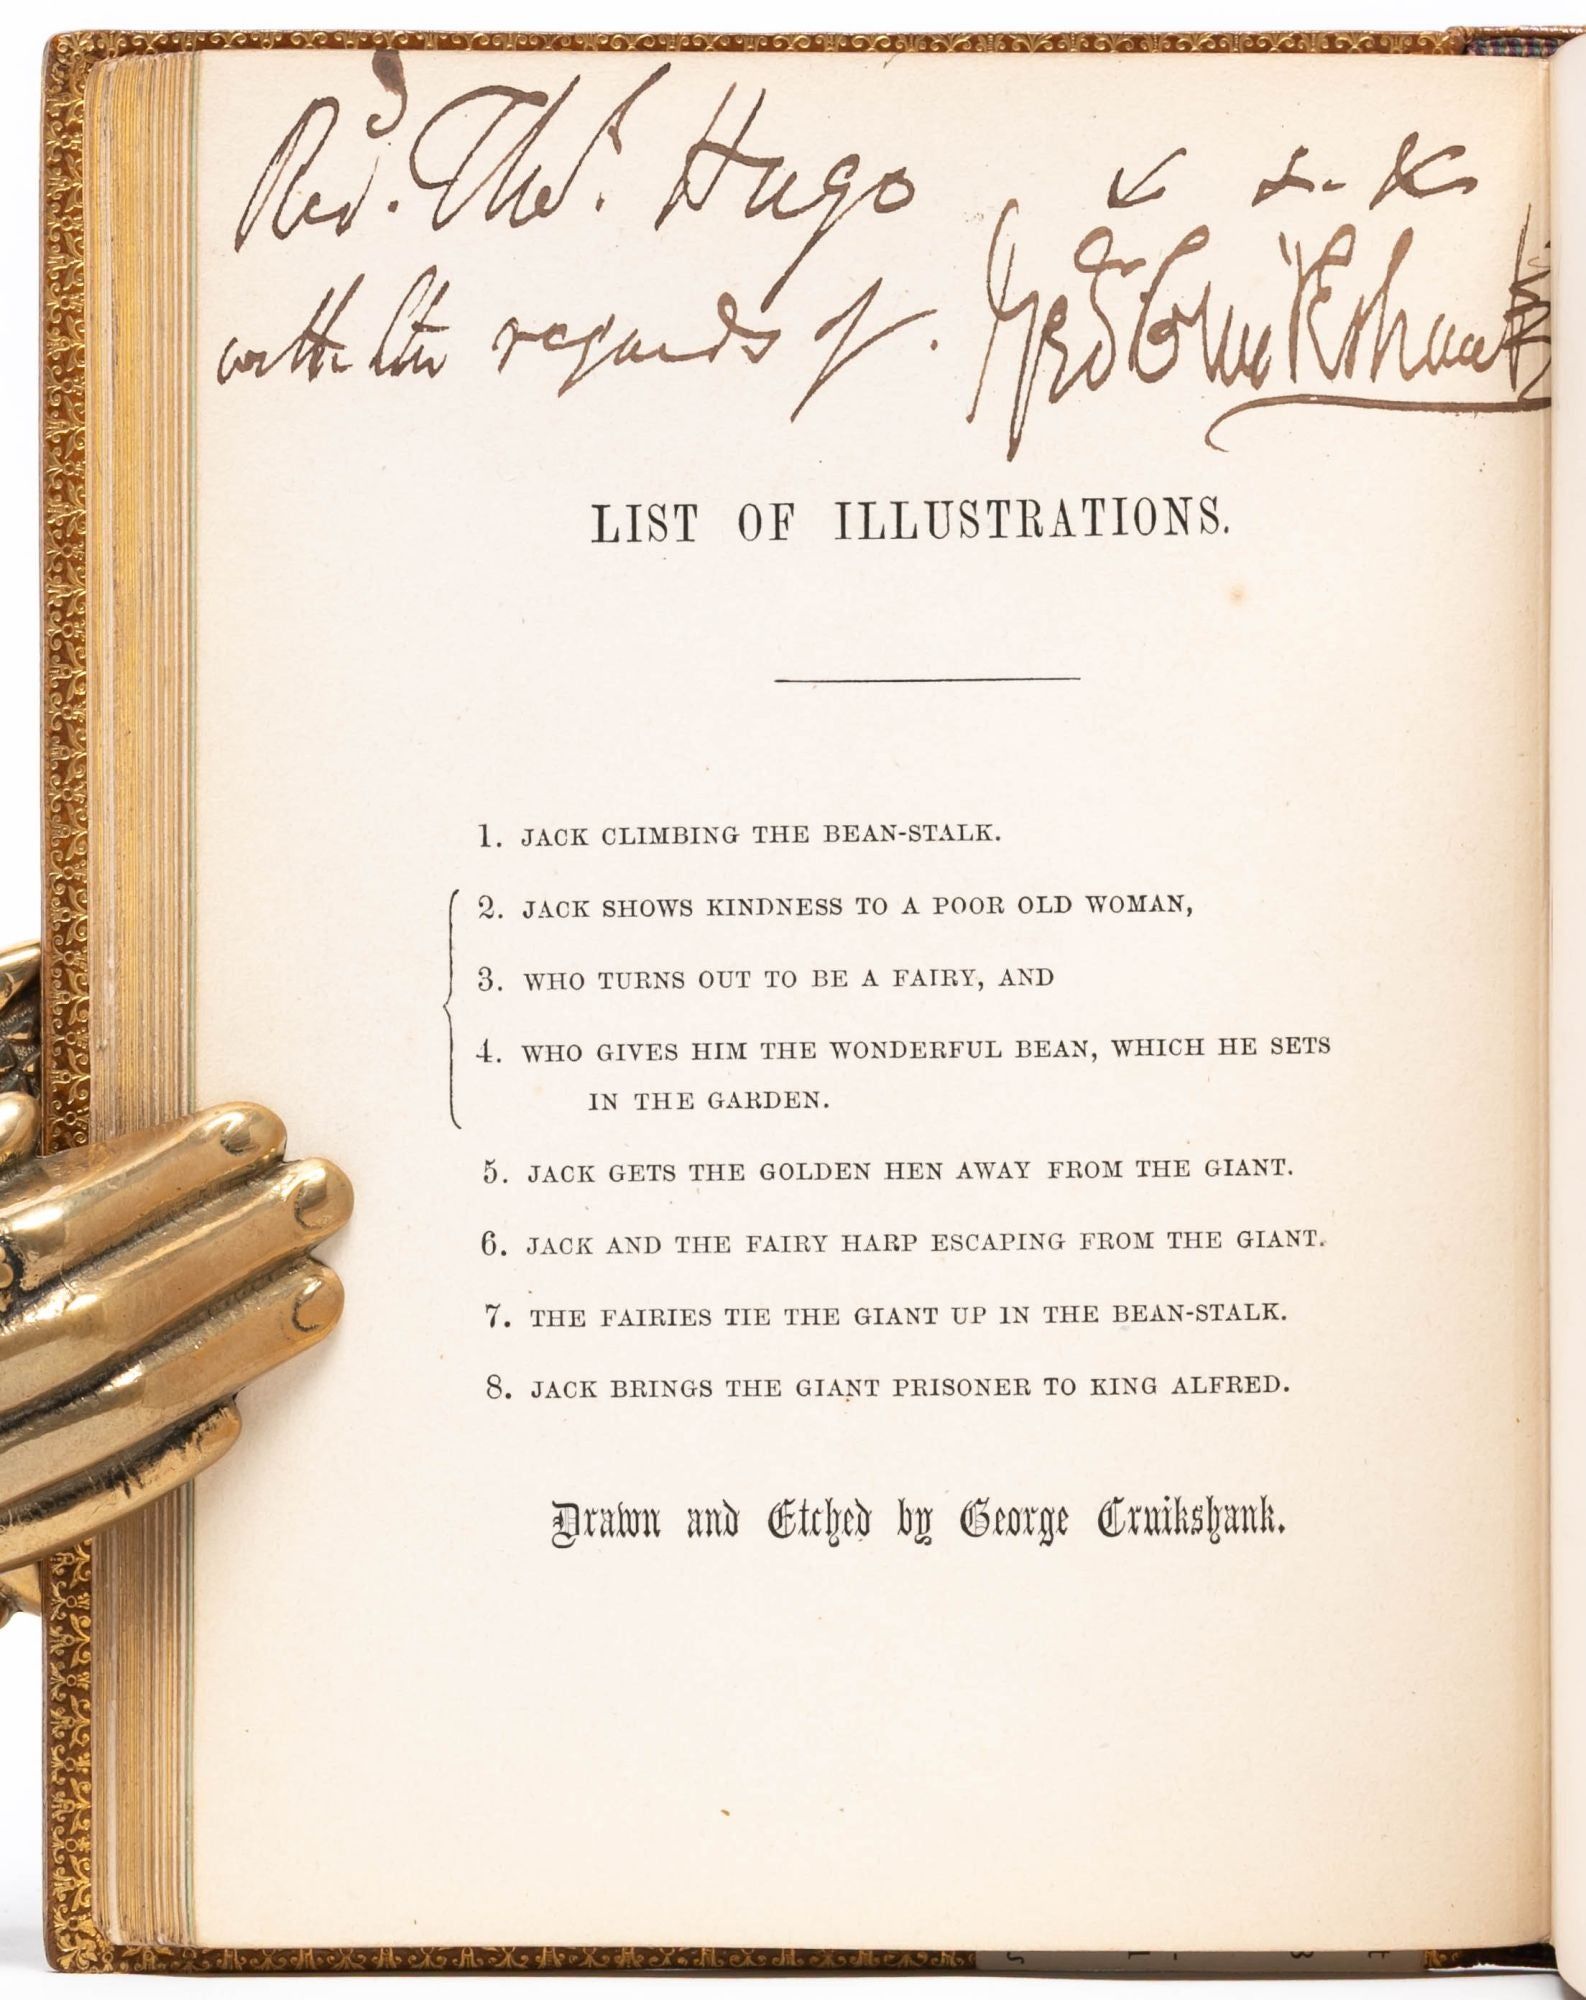 Revd. Thos. Hugo & &. &
with the regards of. Geo Cruikshank
LIST OF ILLUSTRATIONS.
1. JACK CLIMBING THE BEAN-STALK.
2. JACK SHOWS KINDNESS TO A POOR OLD WOMAN,
3. WHO TURNS OUT TO BE A FAIRY, AND
4. WHO GIVES HIM THE WONDERFUL BEAN, WHICH HE SETS
IN THE GARDEN.
5. JACK GETS THE GOLDEN HEN AWAY FROM THE GIANT.
6. JACK AND THE FAIRY HARP ESCAPING FROM THE GIANT.
7. THE FAIRIES TIE THE GIANT UP IN THE BEAN-STALK.
8. JACK BRINGS THE GIANT PRISONER TO KING ALFRED.
Drawn and Etched by George Cruikshank.